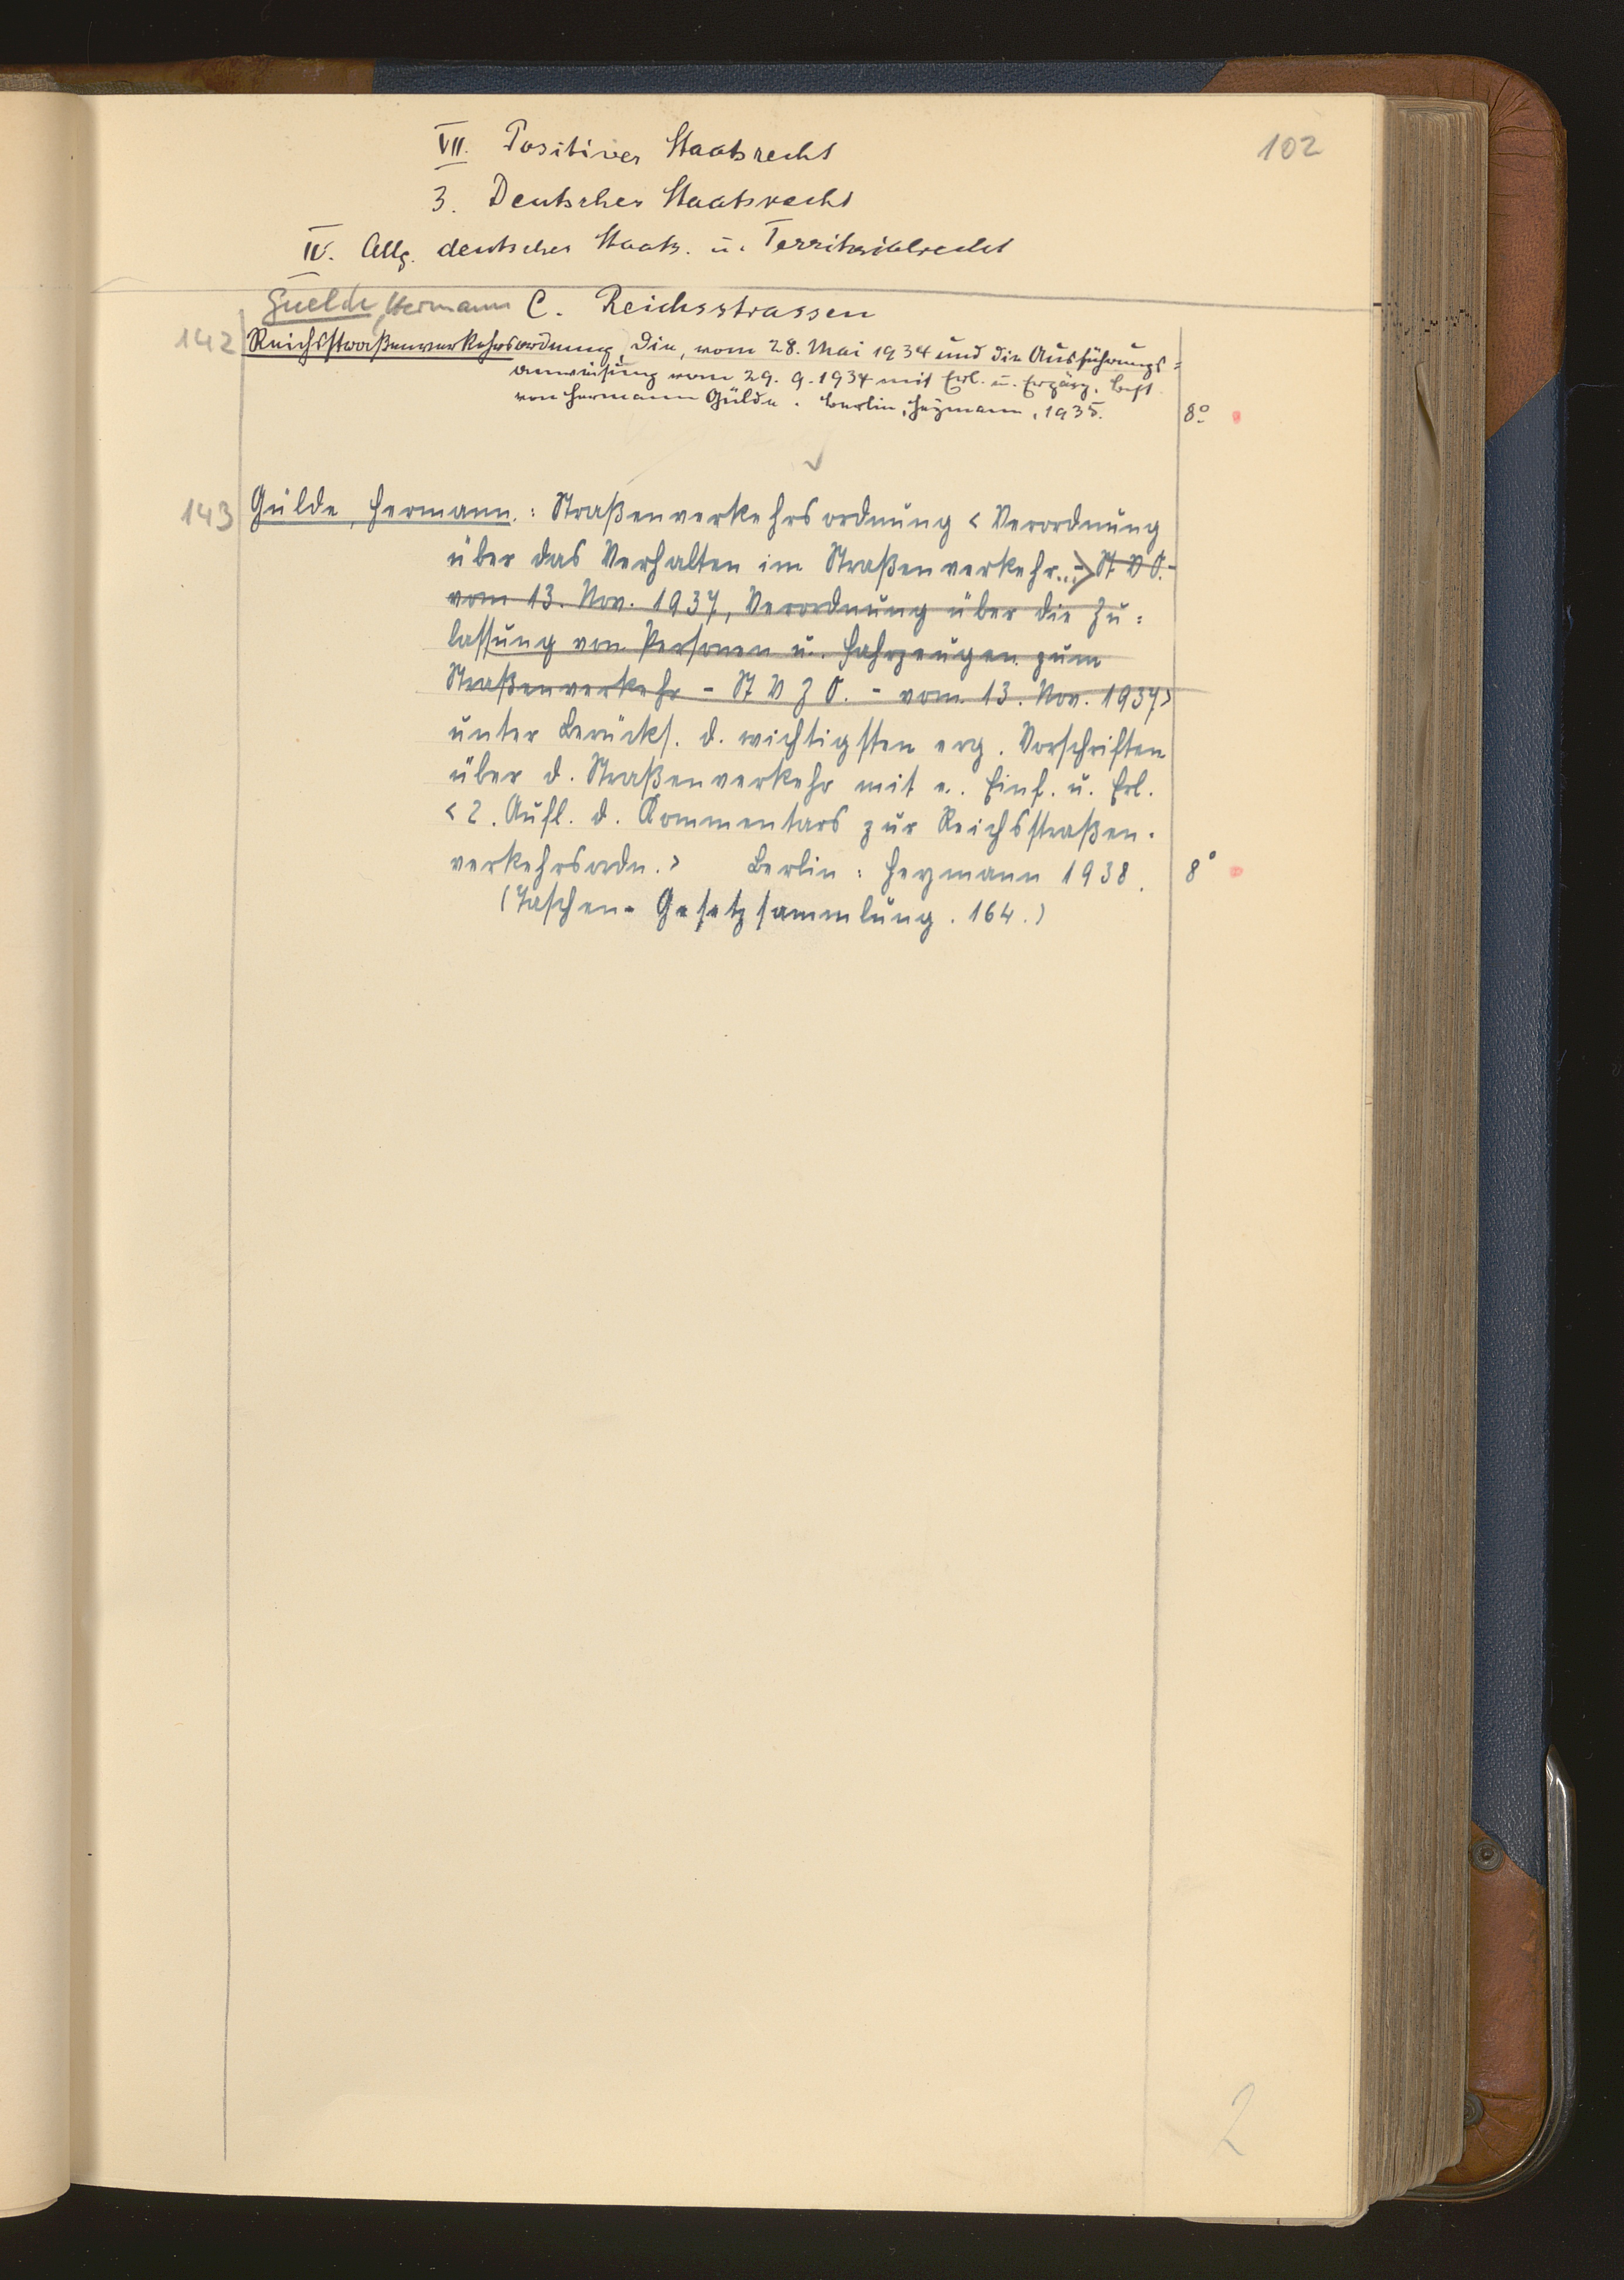 102
VII. Positives Staatsrecht
3. Deutsches Staatsrecht
IV. Allg. deutsches Staats. u. Territorialrecht
Guelde, Hermann C. Reichsstrassen
142 Reichsstraßenverkehrsordnung, Die, vom 28. Mai 1934 und die Ausführungs=
anweisung vom 29. 9. 1934 mit Erl. u. Ergänz. Best.
von Hermann Gülde. Berlin, Heymann, 1935. 8°
143 Gülde, Hermann.: Straßenverkehrsordnung < Verordnung
über das Verhalten im Straßenverkehr...> - St V O. -
vom 13. Nov. 1937, Verordnung über die Zu=
lassung von Personen u. Fahrzeugen zum
Straßenverkehr - St V Z O. - vom 13. Nov. 1937>
unter Berücks. d. wichtigsten erg. Vorschriften
über d. Straßenverkehr mit e. Einf. u. Erl.
< 2. Aufl. d. Kommentars zur Reichsstraßen-
verkehrsordn. > Berlin: Heymann 1938. 8°
(Taschen-Gesetzsammlung. 164.)
2